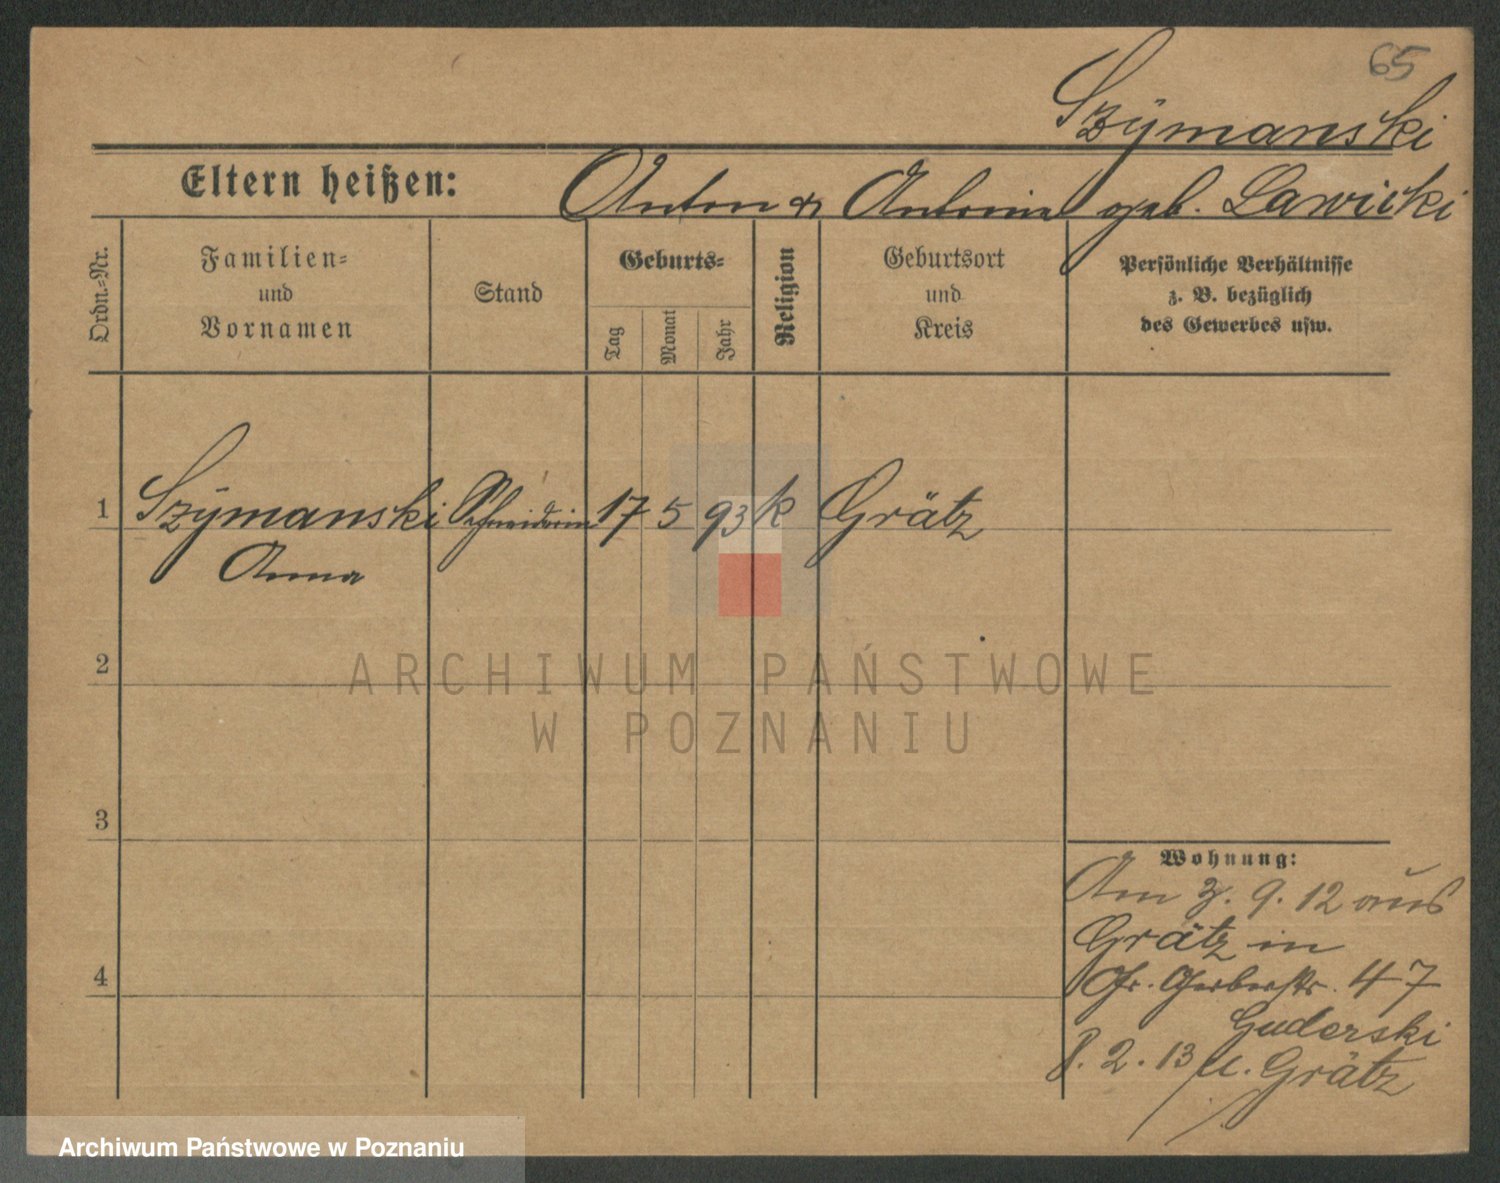 65
Szÿmanski
Eltern heißen: Anton & Antonina geb. Lawicki
Ordn.-Nr.
Familien-
und
Vornamen
Stand
Geburts-
Tag
Monat
Jahr
Religion
Geburtsort
und
Kreis
Persönliche Verhältnisse
z. B. bezüglich
des Gewerbes usw.
1 Szÿmanski Schneiderin 17 5 93 k Grätz
Anna
2
ARCHIWUM PAŃSTWOWE
W POZNANIU
3
4
Wohnung:
Am 3. 9. 12 aus
Grätz in
Gr. Gerberstr. 47
Guderski
8. 2. 13 n. Grätz
Archiwum Państwowe w Poznaniu